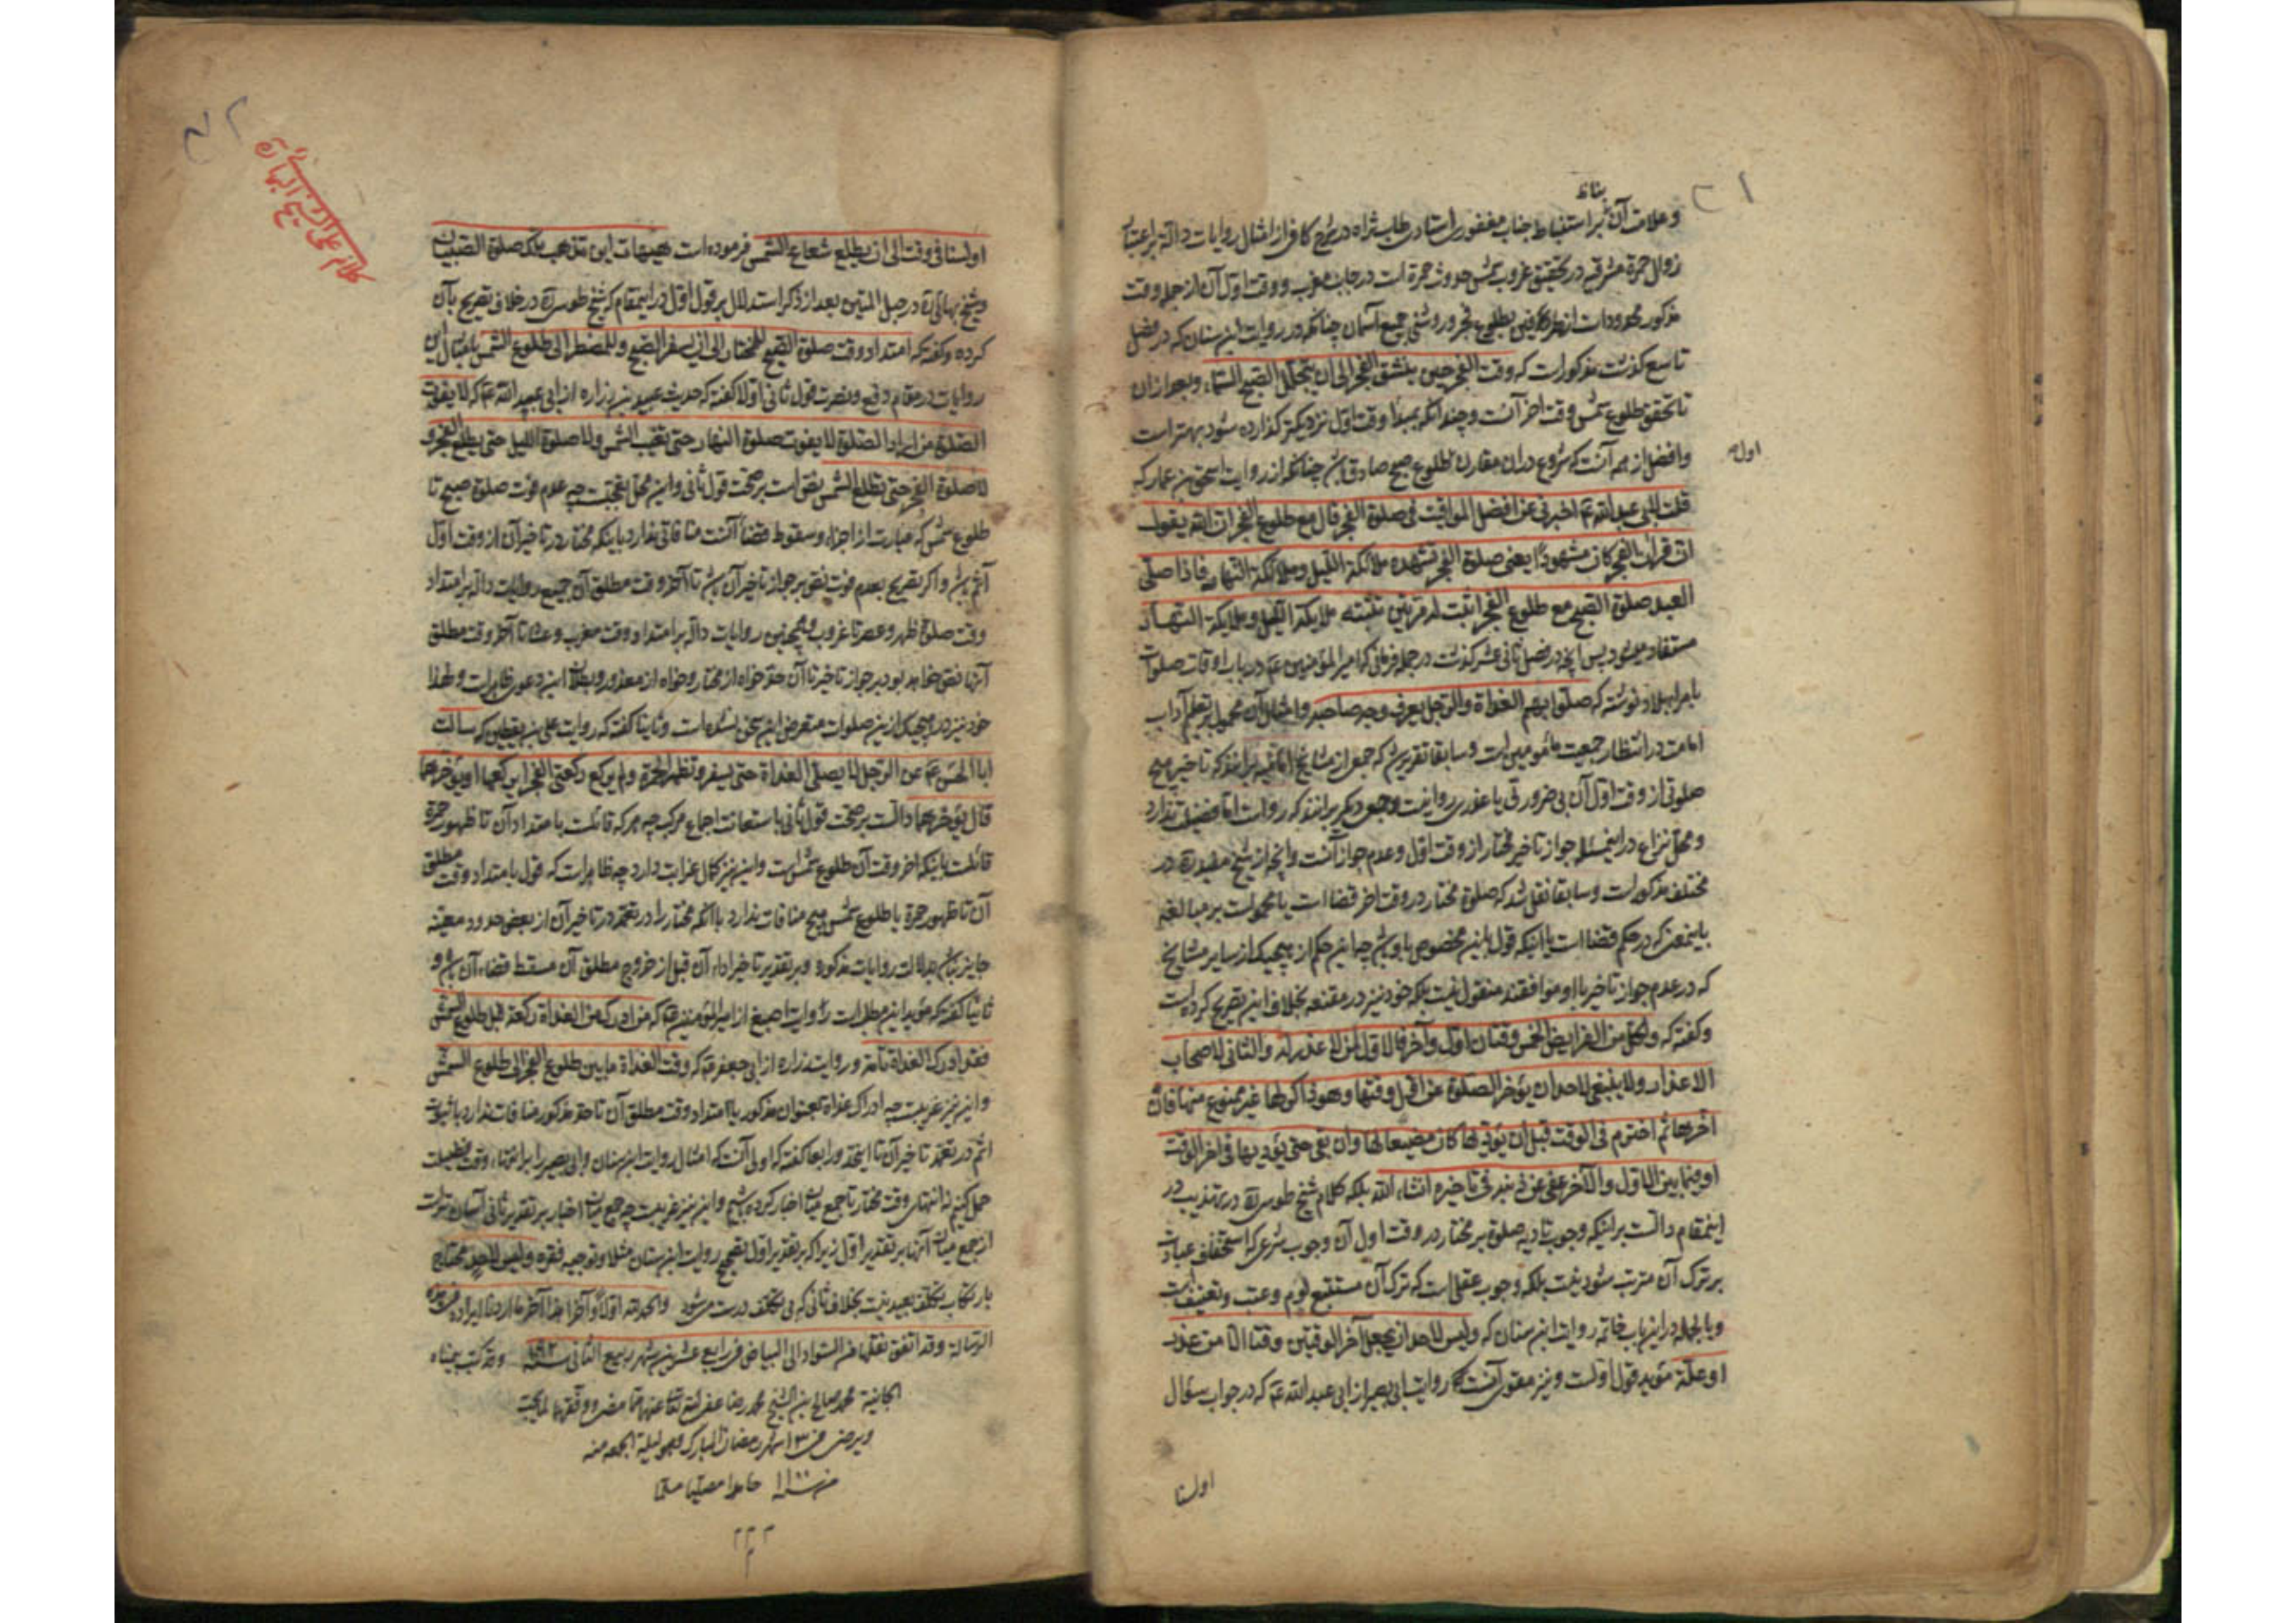 وعلامت آن بنابر استنباط جناب مغفوری استادی طاب ثراه در شرح کافی از امثال روایات داله بر اعتبار
زوال حمره مشرقیه در تحقق غروب شمس حدوث حمرة است در جانب مغرب ووقت اول آن از جمله وقت
مذکور محدودات از طرفین بطلوع فجر وروشنی جمیع آسمان چنانکه در روایت ابن سنان که در فصل
تاسع گذشت مذکورات که وقت الفجر حین ینشق الفجر الی ان یتجلل الصبح السماء وبعد از آن
تا تحقق طلوع شمس وقت آخر آنست وچندانکه بمبدأ وقت اول نزدیکتر گذارده شود بهتر است
وافضل از همه آنست که شروع در آن مقارن طلوع صبح صادق باشد چنانکه از روایت اسحق بن عمار که
قلت لابی عبد الله ع اخبرنی عن افضل المواقیت فی صلوة الفجر قال مع طلوع الفجر ان الله یقول
ان قرآن الفجر کان مشهودا یعنی صلوة الفجر تشهده ملائکة اللیل وملائکة النهار فاذا صلی
العبد صلوة الصبح مع طلوع الفجر اثبت له مرتین تثبته ملایکة اللیل وملایکة النهار
مستفاد میشود پس آنچه در فصل ثانی عشر گذشت در جمله فرمانی که امیر المؤمنین ع در باب اوقات صلوات
بامراء بلاد نوشته که صلوا بهم الغداة والرجل یعرف وجه صاحبه وامثال آن محمول بر تعلیم آداب
امامت در انتظار جمعیت مأمومین است وسابقا تقریر شد که جمعی از مشایخ امامیه برانند که تاخیر هیچ
صلوتی از وقت اول آن بی ضرورتی یا عذری روا نیست وجمعی دیگر برانند که رواست اما فضیلت ندارد
ومحل نزاع در این مسئله جواز تاخیر مختار از وقت اول وعدم جواز آنست وآنچه از شیخ مفید ره در
مختلف مذکور است وسابقا نقل شد که صلوة مختار در وقت آخر قضا است یا محمولست بر مبالغه
باینمعنی که در حکم قضا است یا اینکه قول باین مخصوص باو باشد چه این حکم از هیچیک از سایر مشایخ
که در عدم جواز تاخیر با او موافقند منقول نیست بلکه خود نیز در مقنعه بخلاف این تصریح کرده است
وگفته که ولکل من الفرایض الخمس وقتان اول وآخر فالاول لمن لا عذر له والثانی لاصحاب
الاعذار ولا ینبغی لاحد ان یؤخر الصلوة عن اول وقتها وهو ذاکر لها غیر ممنوع منها فان
اخرها ثم اخترم فی الوقت قبل ان یؤدیها کان مضیعا لها وان بقی حتی یؤدیها فی آخر الوقت
او فیما بین الاول والآخر عفی عن ذنبه فی تاخیره انشاء الله بلکه کلام شیخ طوسی ره در تهذیب در
اینمقام دالست بر اینکه وجوب تادیه صلوة بر مختار در وقت اول آن وجوب شرعی که استحقاق عقاب
بر ترک آن مترتب شود نیست بلکه وجوب عقلی است که ترک آن مستتبع لوم وعتب وتعنیف است
وبالجمله در این باب خاتمه روایت ابن سنان که ولیس لاحد ان یجعل آخر الوقتین وقتا الا من عذر
او علة مؤید قول اولست ونیز مقوی آنست که روایت ابی بصیر از ابی عبد الله ع که در جواب سؤال
اوله
اولسنا
اولسنا فی وقت الی ان یطلع شعاع الشمس فرموده است هیهات این تذهب تلک صلوة الصبیان
وشیخ بهائی ره در حبل المتین بعد از ذکر استدلال بر قول اول در اینمقام که شیخ طوسی ره در خلاف تصریح بآن
کرده وگفته که امتداد وقت صلوة الصبح للمختار الی ان یسفر الصبح وللمضطر الی طلوع الشمس بامثال این
روایات در مقام دفع ونصرت قول ثانی اولا گفته که حدیث عبید بن زراره از ابی عبد الله ع که لا یفوت
الصلوة من اراد الصلوة لا یفوت صلوة النهار حتی تغیب الشمس ولا صلوة اللیل حتی یطلع الفجر و
لا صلوة الفجر حتی تطلع الشمس نص است بر صحت قول ثانی واین محل تعجبست چه عدم فوت صلوة صبح تا
طلوع شمس که عبارت از اجزاء وسقوط قضاء آنست منافاتی ندارد باینکه مختار در تاخیر آن از وقت اول
آثم باشد واگر تصریح بعدم فوت نص بر جواز تاخیر آن باشد تا آخر وقت مطلق آن جمیع روایات داله بر امتداد
وقت صلوة ظهر وعصر تا غروب وهمچنین روایات داله بر امتداد وقت مغرب وعشا تا آخر وقت مطلق
آنها نص خواهد بود بر جواز تاخیر تا آن حد خواه از مختار وخواه از معذور وبطلان این دعوی ظاهر است ولهذا
خود نیز در هیچیک از این صلوات متعرض این سخن نشده است وثانیا گفته که روایت علی بن یقطین که سألت
ابا الحسن ع عن الرجل لا یصلی الغداة حتی یسفر وتظهر الحمرة ولم یرکع رکعتی الفجر ایرکعهما او یؤخرهما
قال یؤخرهما دالست بر صحت قول ثانی باستعانت اجماع مرکب چه هر که قائلست بامتداد آن تا ظهور حمرة
قائلست باینکه آخر وقت آن طلوع شمس است واین نیز کمال غرابت دارد چه ظاهر است که قول بامتداد وقت مطلق
آن تا ظهور حمرة یا طلوع شمس هیچ منافات ندارد با آنکه مختار را در تعمد در تاخیر آن از بعض حدود معینه
جایز نباشد بدلالت روایات مذکوره وبر تقدیر تاخیر اداء آن قبل از خروج مطلق آن مسقط قضاء آن باشد و
ثالثا گفته که مؤید این مطلب است روایت اصبغ از امیر المؤمنین ع که من ادرک من الغداة رکعة قبل طلوع الشمس
فقد ادرک الغداة تامة وروایت زراره از ابی جعفر ع که وقت الغداة ما بین طلوع الفجر الی طلوع الشمس
واین نیز غریبست چه ادراک غداة بعنوان مذکور یا امتداد وقت مطلق آن تا حد مذکور منافات ندارد با ثبوت
اثم در تعمد تاخیر آن تا اینحد ورابعا گفته که اولی آنست که امثال روایت ابن سنان وابی بصیر را بر انتهاء وقت فضیلت
حمل کنیم نه انتهای وقت مختار تا جمع میان اخبار کرده باشیم واین نیز غریبست چه جمع میان اخبار بر تقدیر ثانی آسان تر است
از جمع میان آنها بر تقدیر اول زیرا که بر تقدیر اول تصحیح روایت ابن سنان مثلا وتوجیه فقره ولیس لاحد محتاج
بارتکاب تکلف بعید نیست بخلاف ثانی که بی تکلف درست میشود والحمد لله اولا وآخرا هذا آخر ما اردنا ایراده فی هذه
الرسالة وقد اتفق نقلها من السواد الی البیاض فی رابع عشرین شهر ربیع الثانی سنه ۱۰۹۲ وقد کتب بیمناه
الجانیة محمد صالح بن الشیخ محمد رضا عفی الله تعالی عنهما
من ۱۳ شهر رمضان المبارک وهو لیلة الجمعه منه
من سنه ۱۱۰۰ حامدا مصلیا مسلما